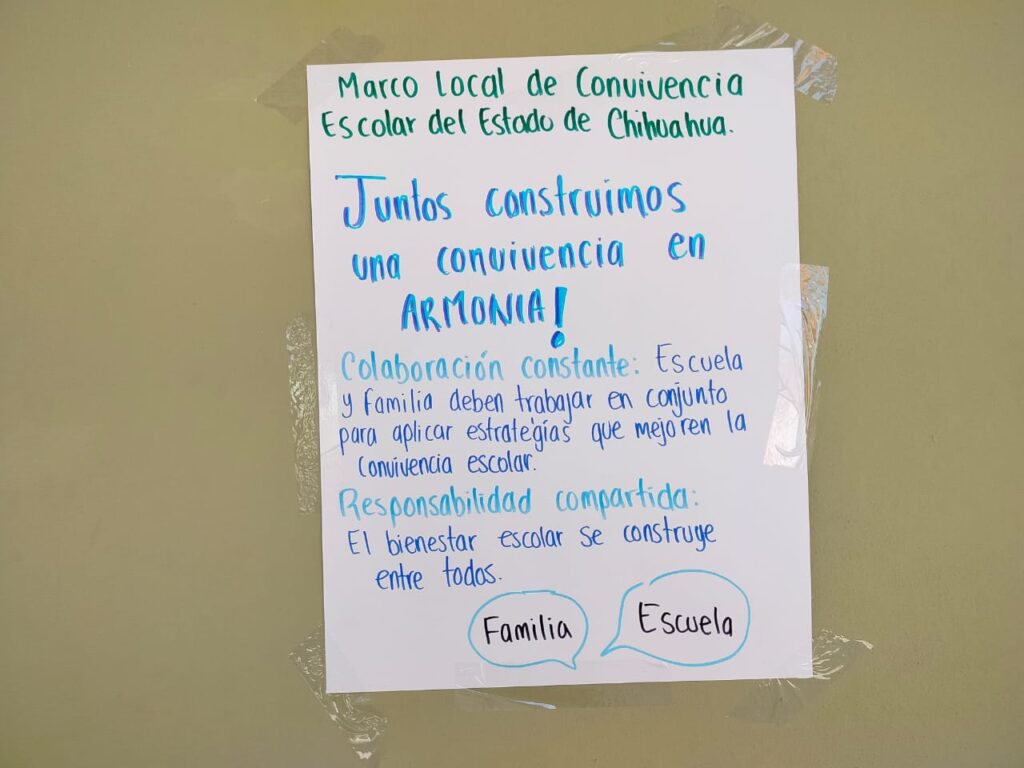 Marco Local de Convivencia
Escolar del Estado de Chihuahua.
Juntos construimos
una convivencia en
ARMONIA!
Colaboración constante: Escuela
y familia deben trabajar en conjunto
para aplicar estrategías que mejoren la
convivencia escolar.
Responsabilidad compartida:
El bienestar escolar se construye
entre todos.
Familia
Escuela